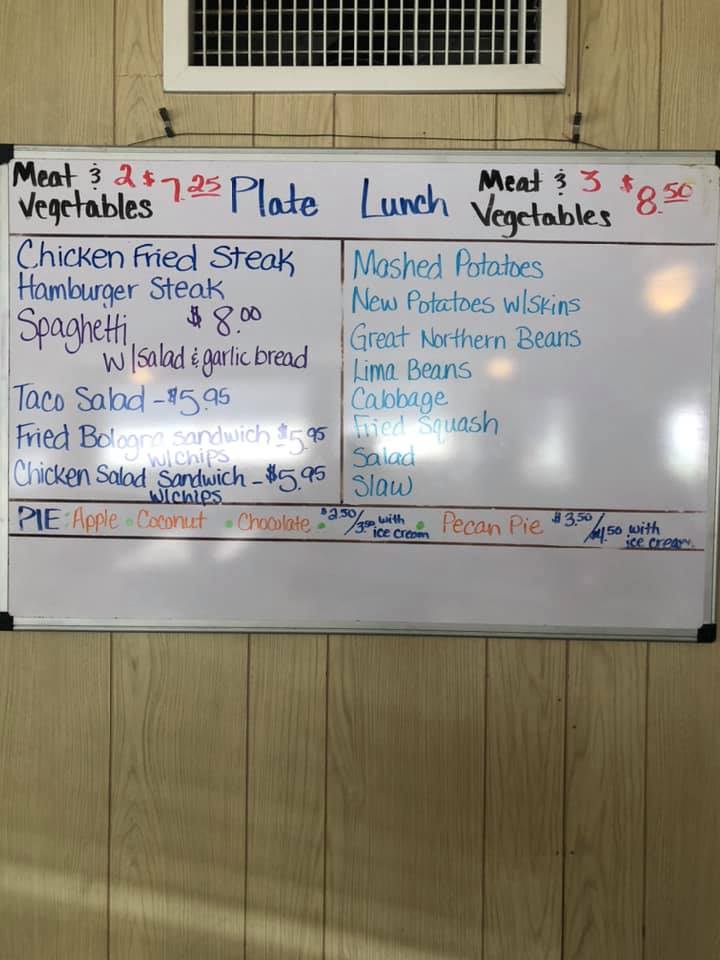 Meat & 2 $7.25 Vegetables
Plate Lunch
Meat & 3 $8.50 Vegetables
Chicken Fried Steak
Hamburger Steak
Spaghetti $8.00
w/salad & garlic bread
Taco Salad - $5.95
Fried Bologna sandwich $5.95
w/chips
Chicken Salad Sandwich - $5.95
w/chips
Mashed Potatoes
New Potatoes w/skins
Great Northern Beans
Lima Beans
Cabbage
Fried Squash
Salad
Slaw
PIE: Apple • Coconut • Chocolate • $2.50/3.50 with ice cream • Pecan Pie $3.50/$4.50 with ice cream